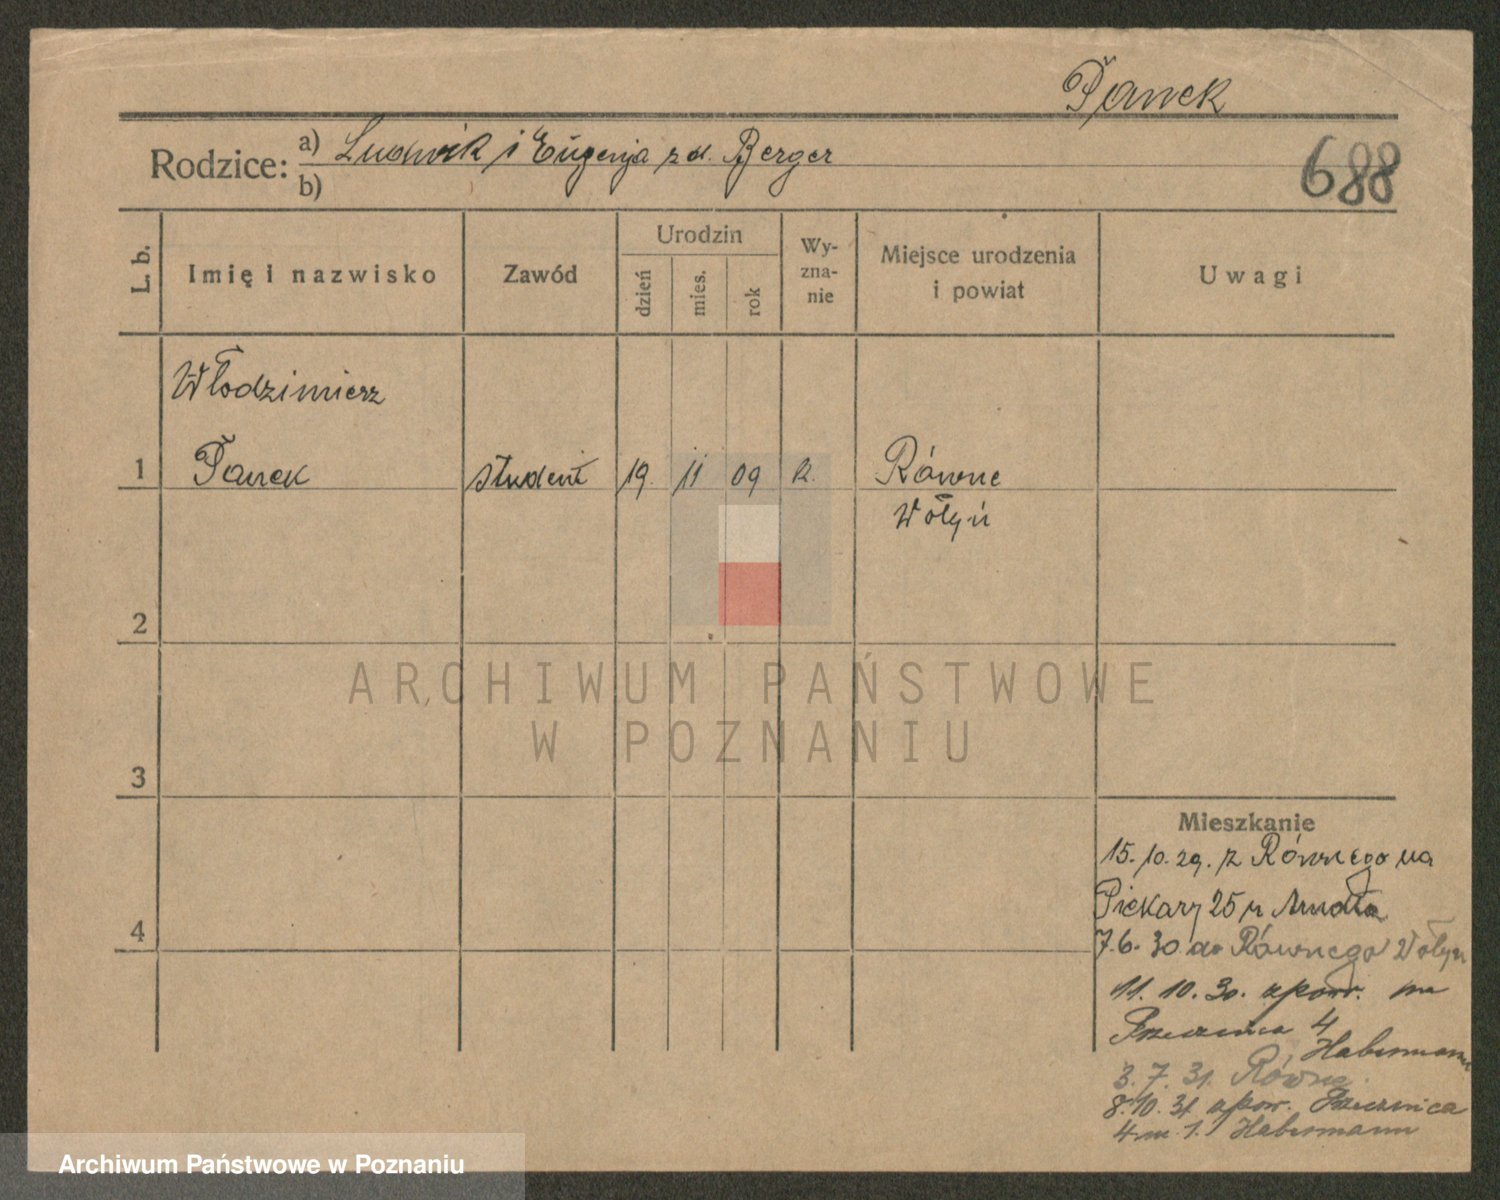 Panek
Rodzice: a) Ludwik i Eugenja z d. Berger
b)
688
L. b.
Imię i nazwisko
Zawód
Urodzin
dzień
mies.
rok
Wy-
zna-
nie
Miejsce urodzenia
i powiat
Uwagi
Włodzimierz
1 Panek student 19. 11 09 R. Równe
Wołyń
2
3
4
Mieszkanie
15. 10. 29. z Równego na
Piekary 25 u
7. 6. 30 do Równego Wołyń
11. 10. 30. z pow. na
Przecznica 4
Habermann
3. 7. 31. Równe
8. 10. 31 z pow. Przecznica
4 m. 1. Habermann
ARCHIWUM PAŃSTWOWE
W POZNANIU
Archiwum Państwowe w Poznaniu